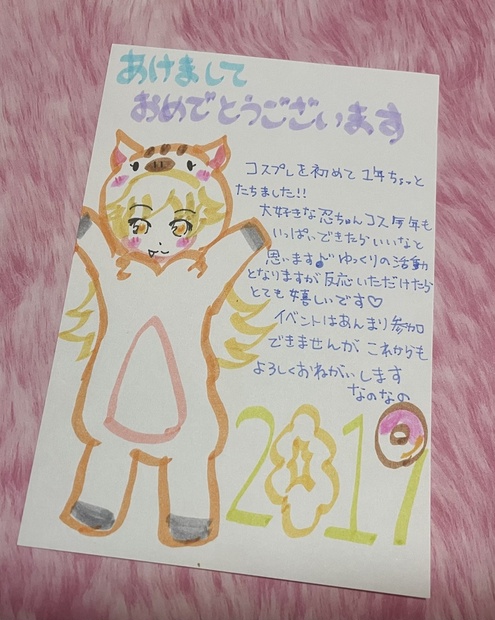 あけまして
おめでとうございます
コスプレを初めて1年ちょっと
たちました!!
大好きな忍ちゃんコス今年も
いっぱいできたらいいなと
思います♪ゆっくりの活動
となりますが反応いただけたら
とても嬉しいです♡
イベントはあんまり参加
できませんがこれからも
よろしくおねがいします
なのなの
2019